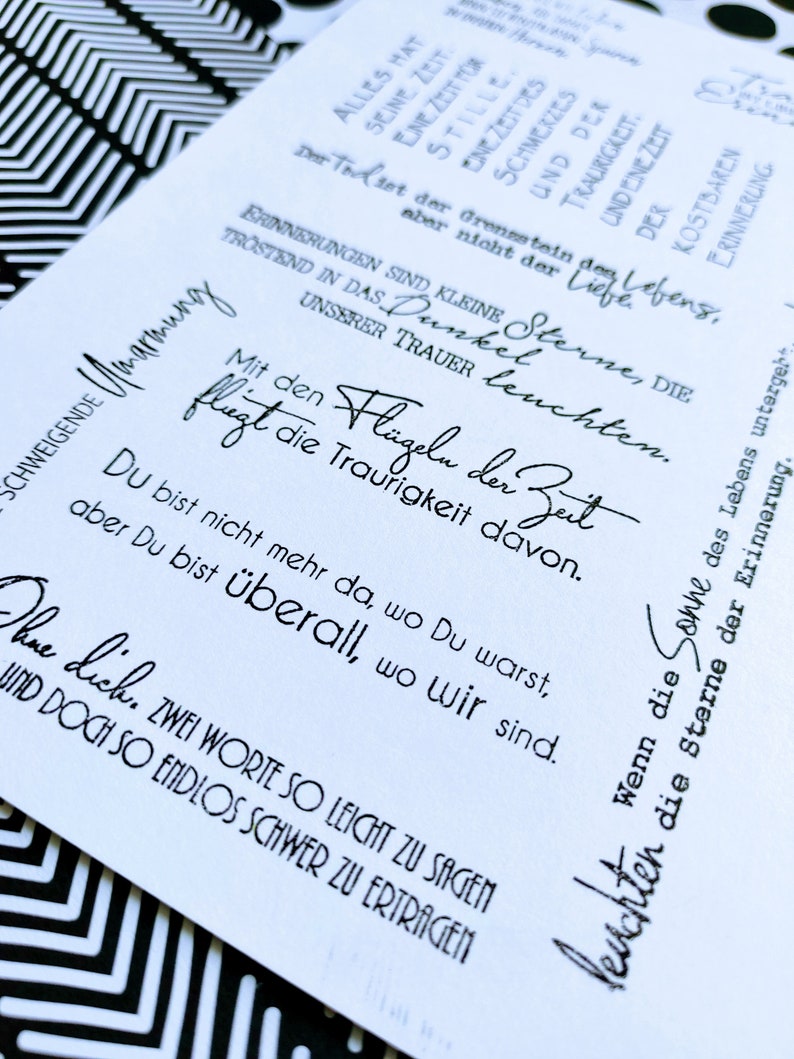 in Deinem Herzen
ALLES HAT
SEINE ZEIT.
EINE ZEIT FÜR
STILLE.
EINE ZEIT DES
SCHMERZES
UND DER
TRAURIGKEIT.
UND EINE ZEIT
DER
KOSTBAREN
ERINNERUNG.
Der Tod ist der Grenzstein des Lebens,
aber nicht der Liebe.
ERINNERUNGEN SIND KLEINE Sterne, DIE
TRÖSTEND IN DAS Dunkel
UNSERER TRAUER leuchten.
SCHWEIGENDE Umarmung
Mit den Flügeln der Zeit
fliegt die Traurigkeit davon.
Du bist nicht mehr da, wo Du warst,
aber Du bist überall, wo wir sind.
Ohne dich. ZWEI WORTE SO LEICHT ZU SAGEN
UND DOCH SO ENDLOS SCHWER ZU ERTRAGEN
Wenn die Sonne des Lebens untergeht
leuchten die Sterne der Erinnerung.